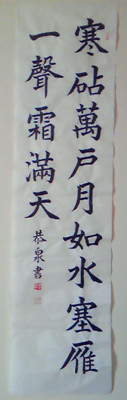 寒砧萬戶月如水塞雁
一聲霜滿天
恭泉書